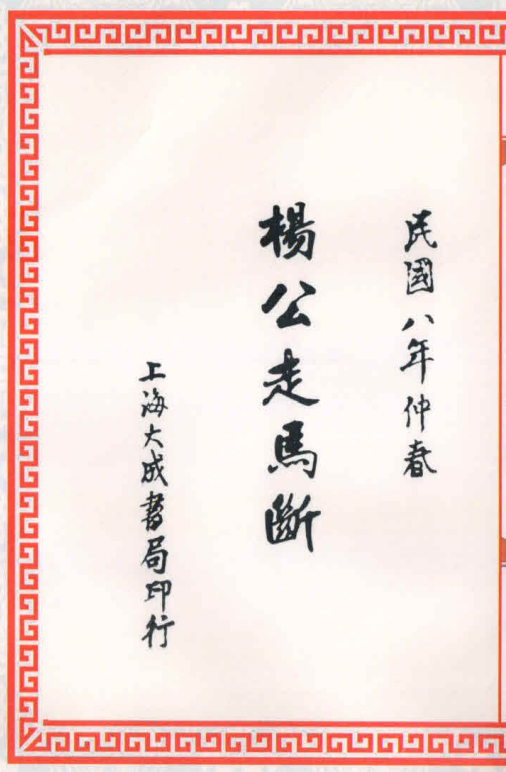 民國八年仲春
楊公走馬斷
上海大成書局印行